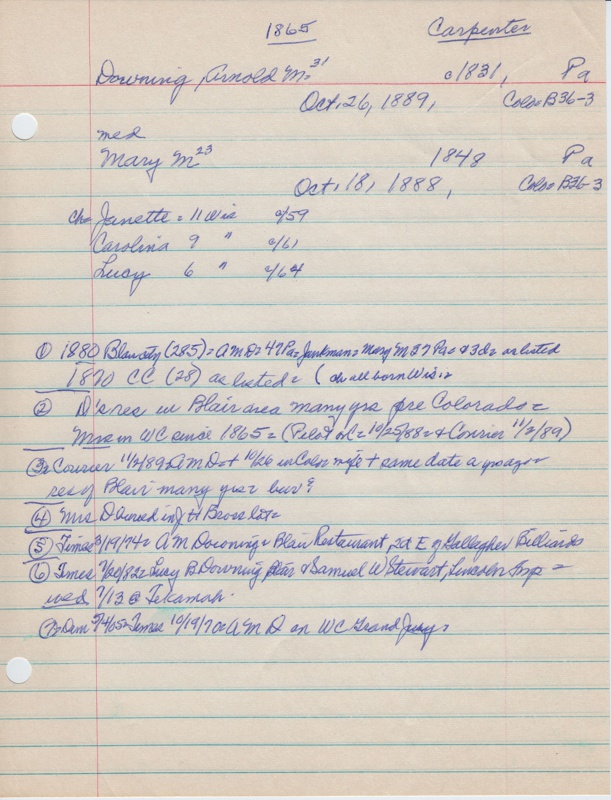 1865 Carpenter
Downing, Arnold M= 31 c1831, Pa
Oct. 26, 1889, Colo= B36-3
med
Mary M 23 1848 Pa
Oct. 18, 1888, Colo= B36-3
ch= Janette = 11 Wis c/59
Carolina 9 " c/61
Lucy 6 " c/64
① 1880 Blair city (285) = A M D = 47 Pa = Junkman = Mary M 37 Pa = & 3 d = as listed
1870 CC (28) as listed = (ch all born Wis =
② D's res in Blair area many yrs pre Colorado =
Mrs in WC since 1865 = (Pilot of = 10/25/88 = & Courier 11/2/89)
③ = Courier 11/2/89 = A M D = + 10/26 in Colo = wife + same date a yr ago =
res of Blair many yrs = bur?
④ Mrs D buried in Bross lot =
⑤ Times 3/19/74 = A M Downing = Blair Restaurant, 2d E of Gallagher Billiards
⑥ Times 7/20/82 = Lucy B Downing, Blair & Samuel W Stewart, Lincoln Twp =
wed 7/13 @ Tekamah.
⑦ = Dem 5/4/65 = Times 10/19/70 = A M D on WC Grand Jury =